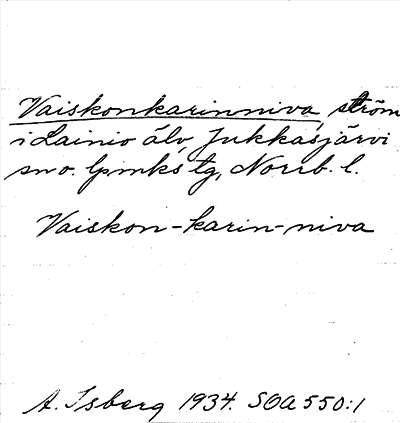 Vaiskonkarinniva, ström
i Lainio älv, Jukkasjärvi
sn o. lpmks tg, Norrb. l.
Vaiskon-karin-niva
A. Isberg 1934. SOA 550:1